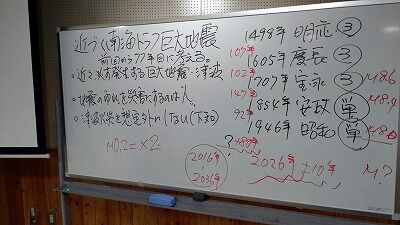 近づく(南海トラフ)巨大地震
前回から77年目に考える。
・近々、必ず発生する巨大地震・津波
・地震の揺れを災害にするのは人。
・津波火災を想定外にしない(下知)
M0.2=×2
1498年 明応 ③
107年
1605年 慶長 ③
102年
1707年 宝永 ③ M8.6
147年
1854年 安政 単 M8.4
92年
1946年 昭和 単 M8.0
? +80年
2016年
2036年
2026年±10年 M?